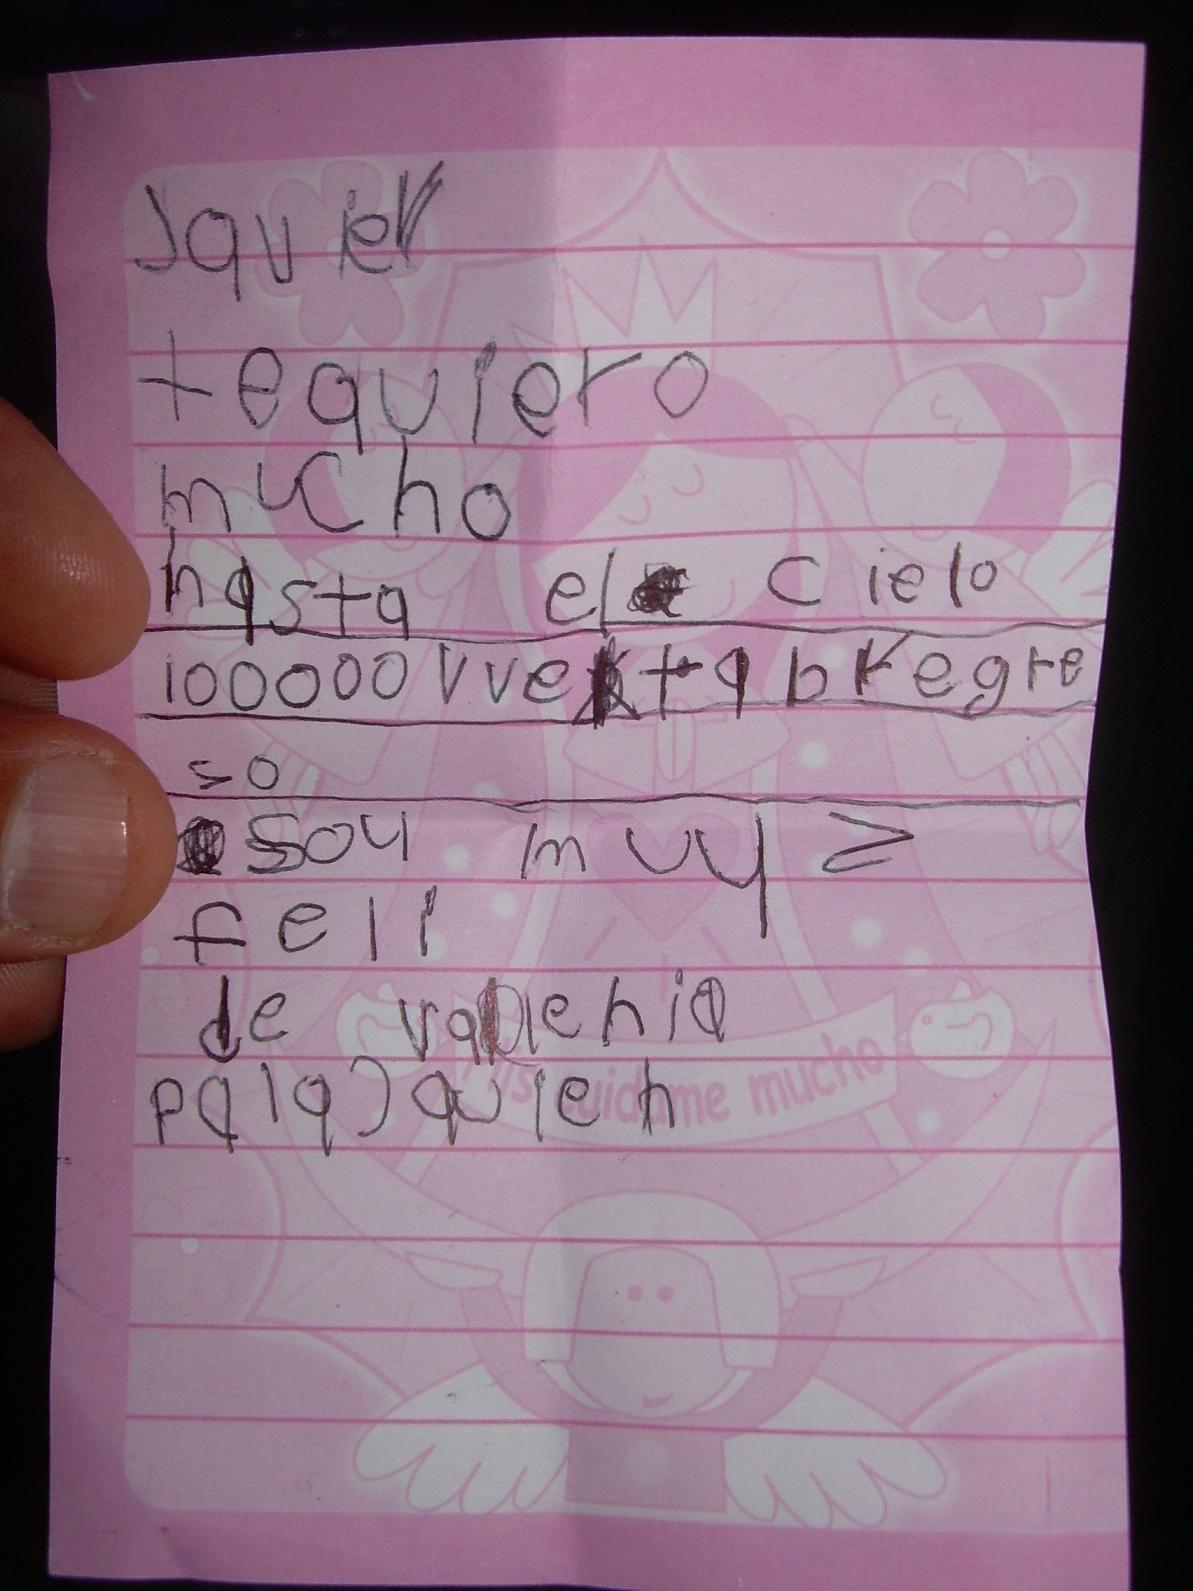 Javier
te quiero
mucho
hasta el cielo
100000 vvelta b regre
so
soy muy
feli
de valenia
pala Javien
cuidame mucho